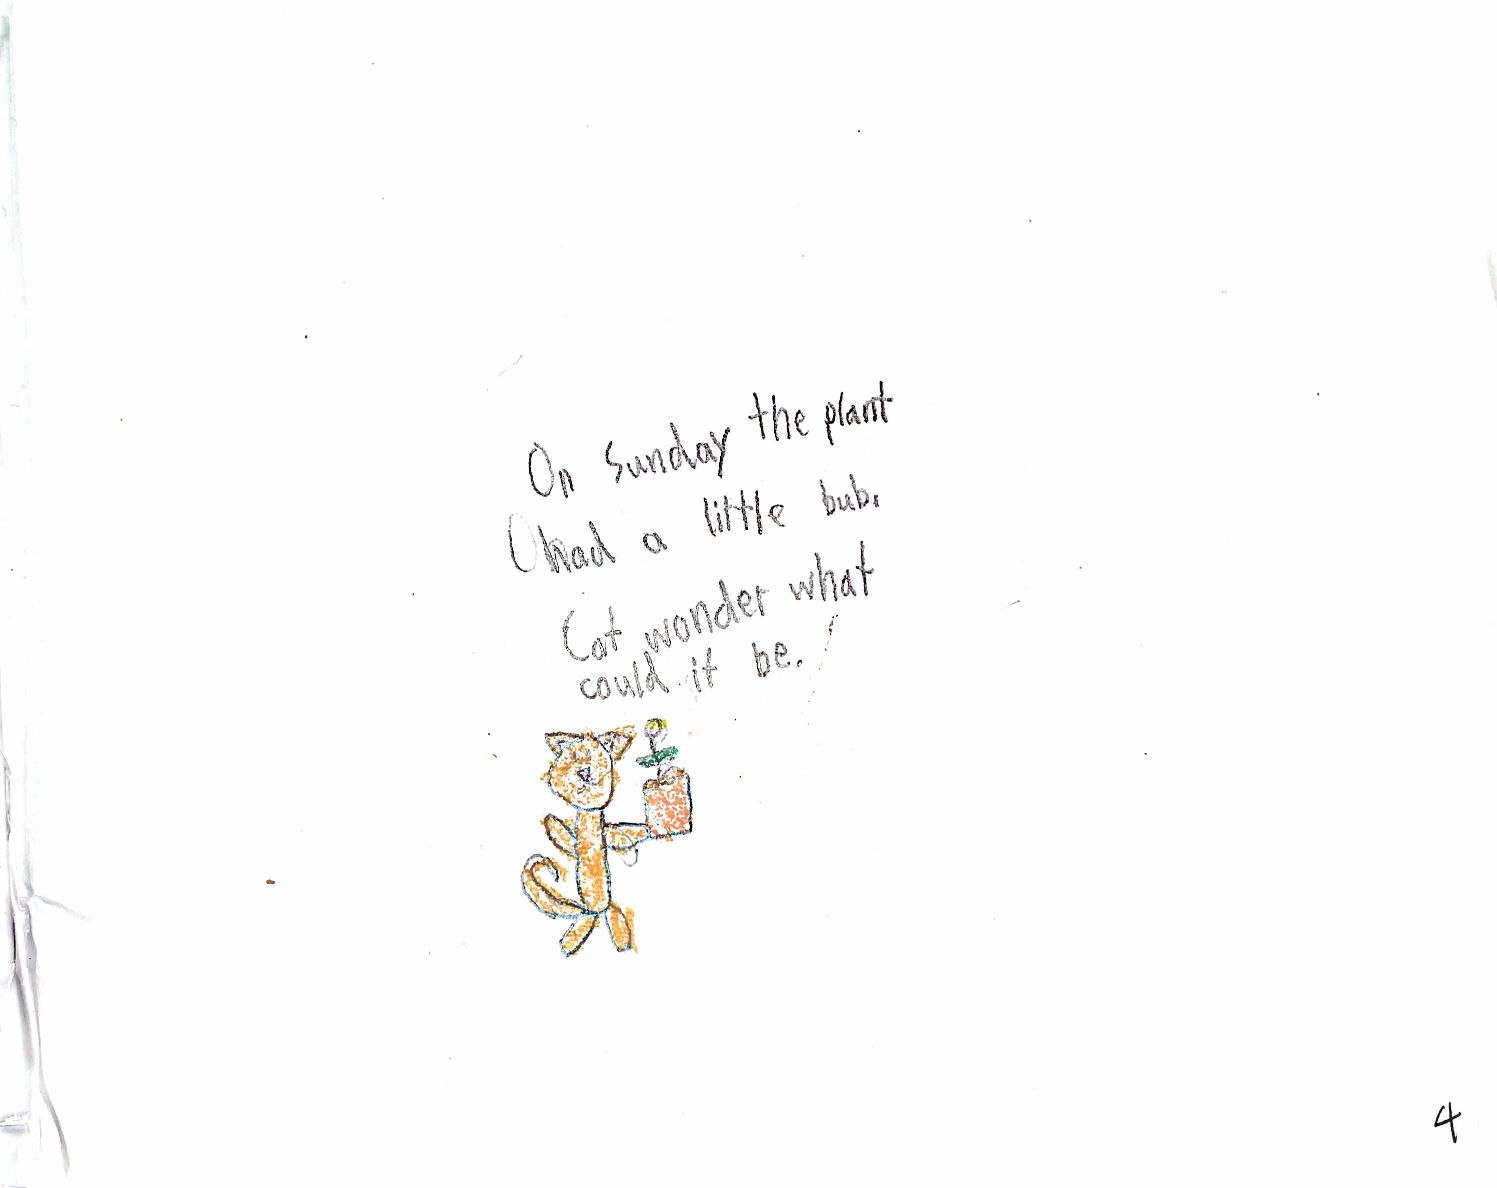 On Sunday the plant
had a little bub.
Cat wonder what
could it be.
4